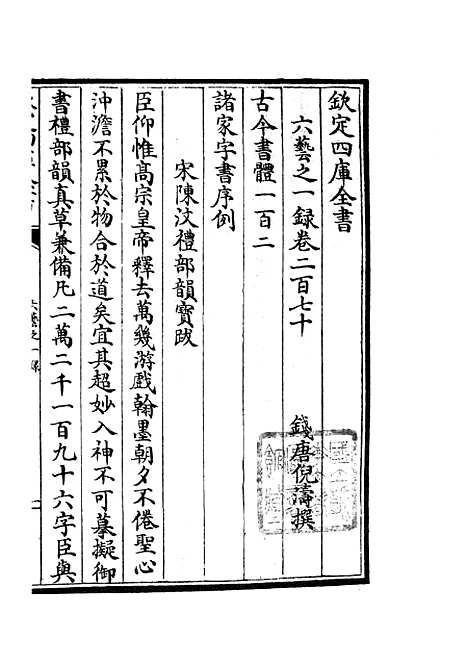 欽定四庫全書
六藝之一録卷二百七十
錢唐倪濤撰
古今書體一百二
諸家字書序例
宋陳汶禮部韻寶跋
臣仰惟髙宗皇帝釋去萬幾游戲翰墨朝夕不倦聖心
沖澹不累於物合於道矣宜其超妙入神不可摹擬御
書禮部韻真草兼備凡二萬二千一百九十六字臣與
六藝之一録